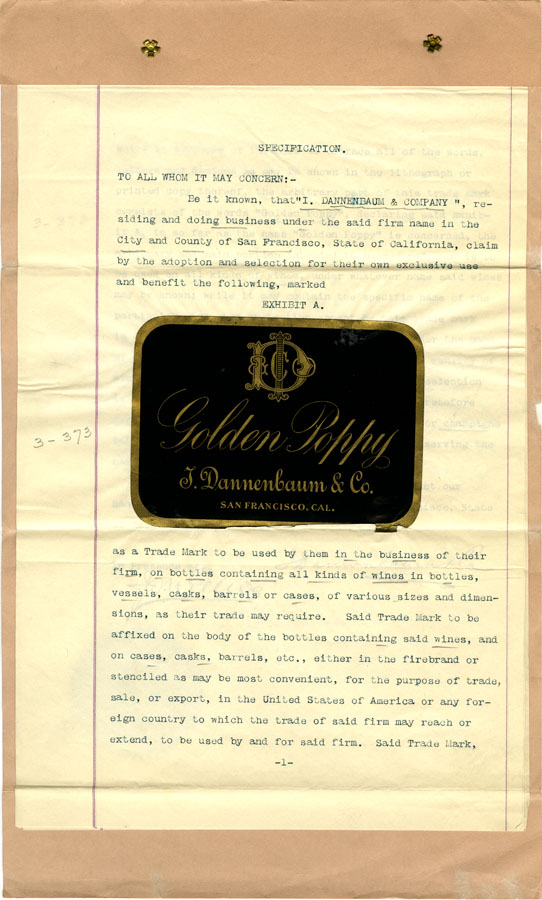 SPECIFICATION.
TO ALL WHOM IT MAY CONCERN:-
Be it known, that"I. DANNENBAUM & COMPANY ", re-
siding and doing business under the said firm name in the
City and County of San Francisco, State of California, claim
by the adoption and selection for their own exclusive use
and benefit the following, marked
EXHIBIT A.
Golden Poppy
I. Dannenbaum & Co.
SAN FRANCISCO, CAL.
3-373
as a Trade Mark to be used by them in the business of their
firm, on bottles containing all kinds of wines in bottles,
vessels, casks, barrels or cases, of various sizes and dimen-
sions, as their trade may require. Said Trade Mark to be
affixed on the body of the bottles containing said wines, and
on cases, casks, barrels, etc., either in the firebrand or
stenciled as may be most convenient, for the purpose of trade,
sale, or export, in the United States of America or any for-
eign country to which the trade of said firm may reach or
extend, to be used by and for said firm. Said Trade Mark,
-1-